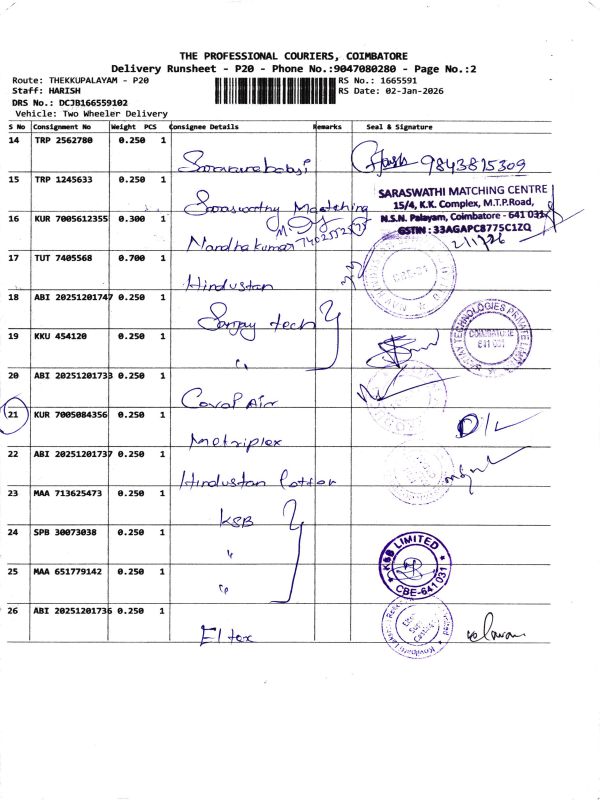 THE PROFESSIONAL COURIERS, COIMBATORE
Delivery Runsheet - P20 - Phone No.:9047080280 - Page No.:2
Route: THEKKUPALAYAM - P20
Staff: HARISH
DRS No.: DCJB166559102
Vehicle: Two Wheeler Delivery
RS No.: 1665591
RS Date: 02-Jan-2026
S No Consignment No Weight PCS Consignee Details Remarks Seal & Signature
14 TRP 2562780 0.250 1 9843815309
15 TRP 1245633 0.250 1 Saraswathy Matching
SARASWATHI MATCHING CENTRE
15/4, K.K. Complex, M.T.P.Road,
N.S.N. Palayam, Coimbatore - 641 031
GSTIN : 33AGAPC8775C1ZQ
2/1/26
16 KUR 7005612355 0.300 1 Nandhakumar
17 TUT 7405568 0.700 1 Hindustan
18 ABI 20251201747 0.250 1 Sanjay tech
19 KKU 454120 0.250 1 "
COIMBATORE
641 031
20 ABI 20251201733 0.250 1 Coval Air
21 KUR 7005084356 0.250 1 Metriplex D/L
22 ABI 20251201737 0.250 1 Hindustan
23 MAA 713625473 0.250 1 KSB
24 SPB 30073038 0.250 1 "
25 MAA 651779142 0.250 1 "
KSB LIMITED
CBE-641 031
26 ABI 20251201736 0.250 1 Eltex